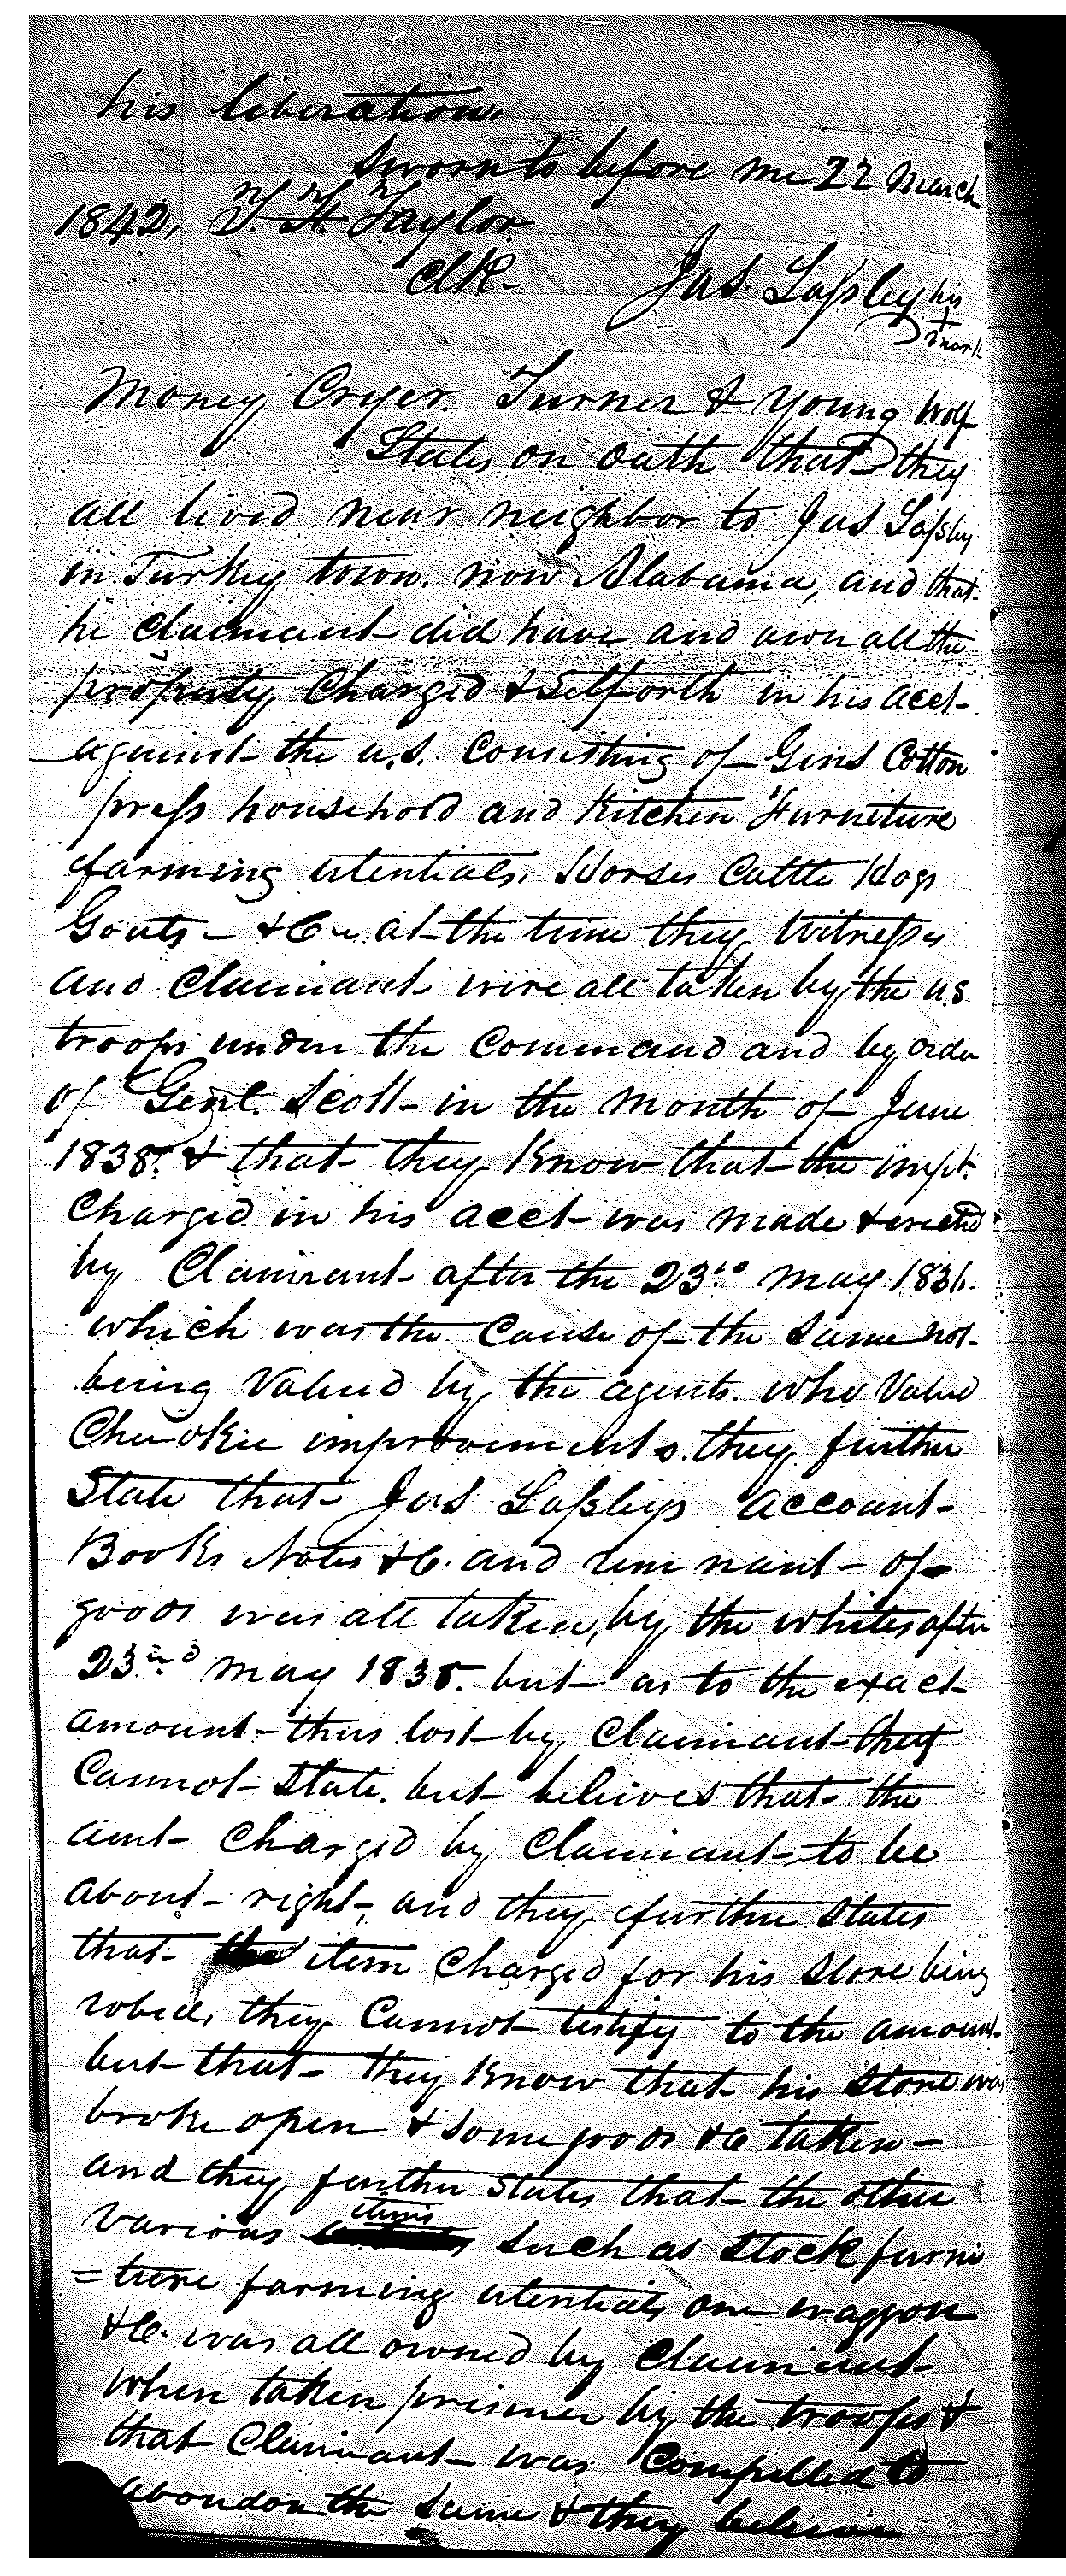 his liberation.
Sworn to before me 22 March
1842, T. H. Taylor
Clk. Jas. Lassley his
X mark
Money Cryer. Turner & Young Wolf
States on oath that they
all lived near neighbor to Jas Lassley
in Turkey town. now Alabama, and that
he claimant did have and own all the
property Charged & Setforth in his acct
against the U.S. Consisting of Gins Cotton
press household and Kitchen Furniture
farming utentials. Horses Cattle Hogs
Goats - &C at the time they Witnesses
and Claimant were all taken by the US
troops under the Command and by order
of Genl. Scott in the Month of June
1838. & that they Know that the impt.
Charged in his acct was made & erected
by Claimant after the 23rd May 1836.
which was the Cause of the Same not
being Valued by the agents. who Valued
Cherokee improvements. they further
State that Jas Lassleys account
Books Notes &C. and remnant of
goods was all taken, by the whites after
23rd May 1838. but as to the exact
amount thus lost by Claimant they
Cannot State. but believes that the
amt Charged by Claimant to be
about right, and they further States
that the item Charged for his Store being
robed, they Cannot testify to the amount
but that they Know that his Store was
broke open & some goods &C taken -
and they further States that the other
various items such as Stock furni
=ture farming utentials one waggon
&C. was all owned by Claimant
when taken prisner by the troops &
that Claimant was Compelled to
aboundon the Same & they believe